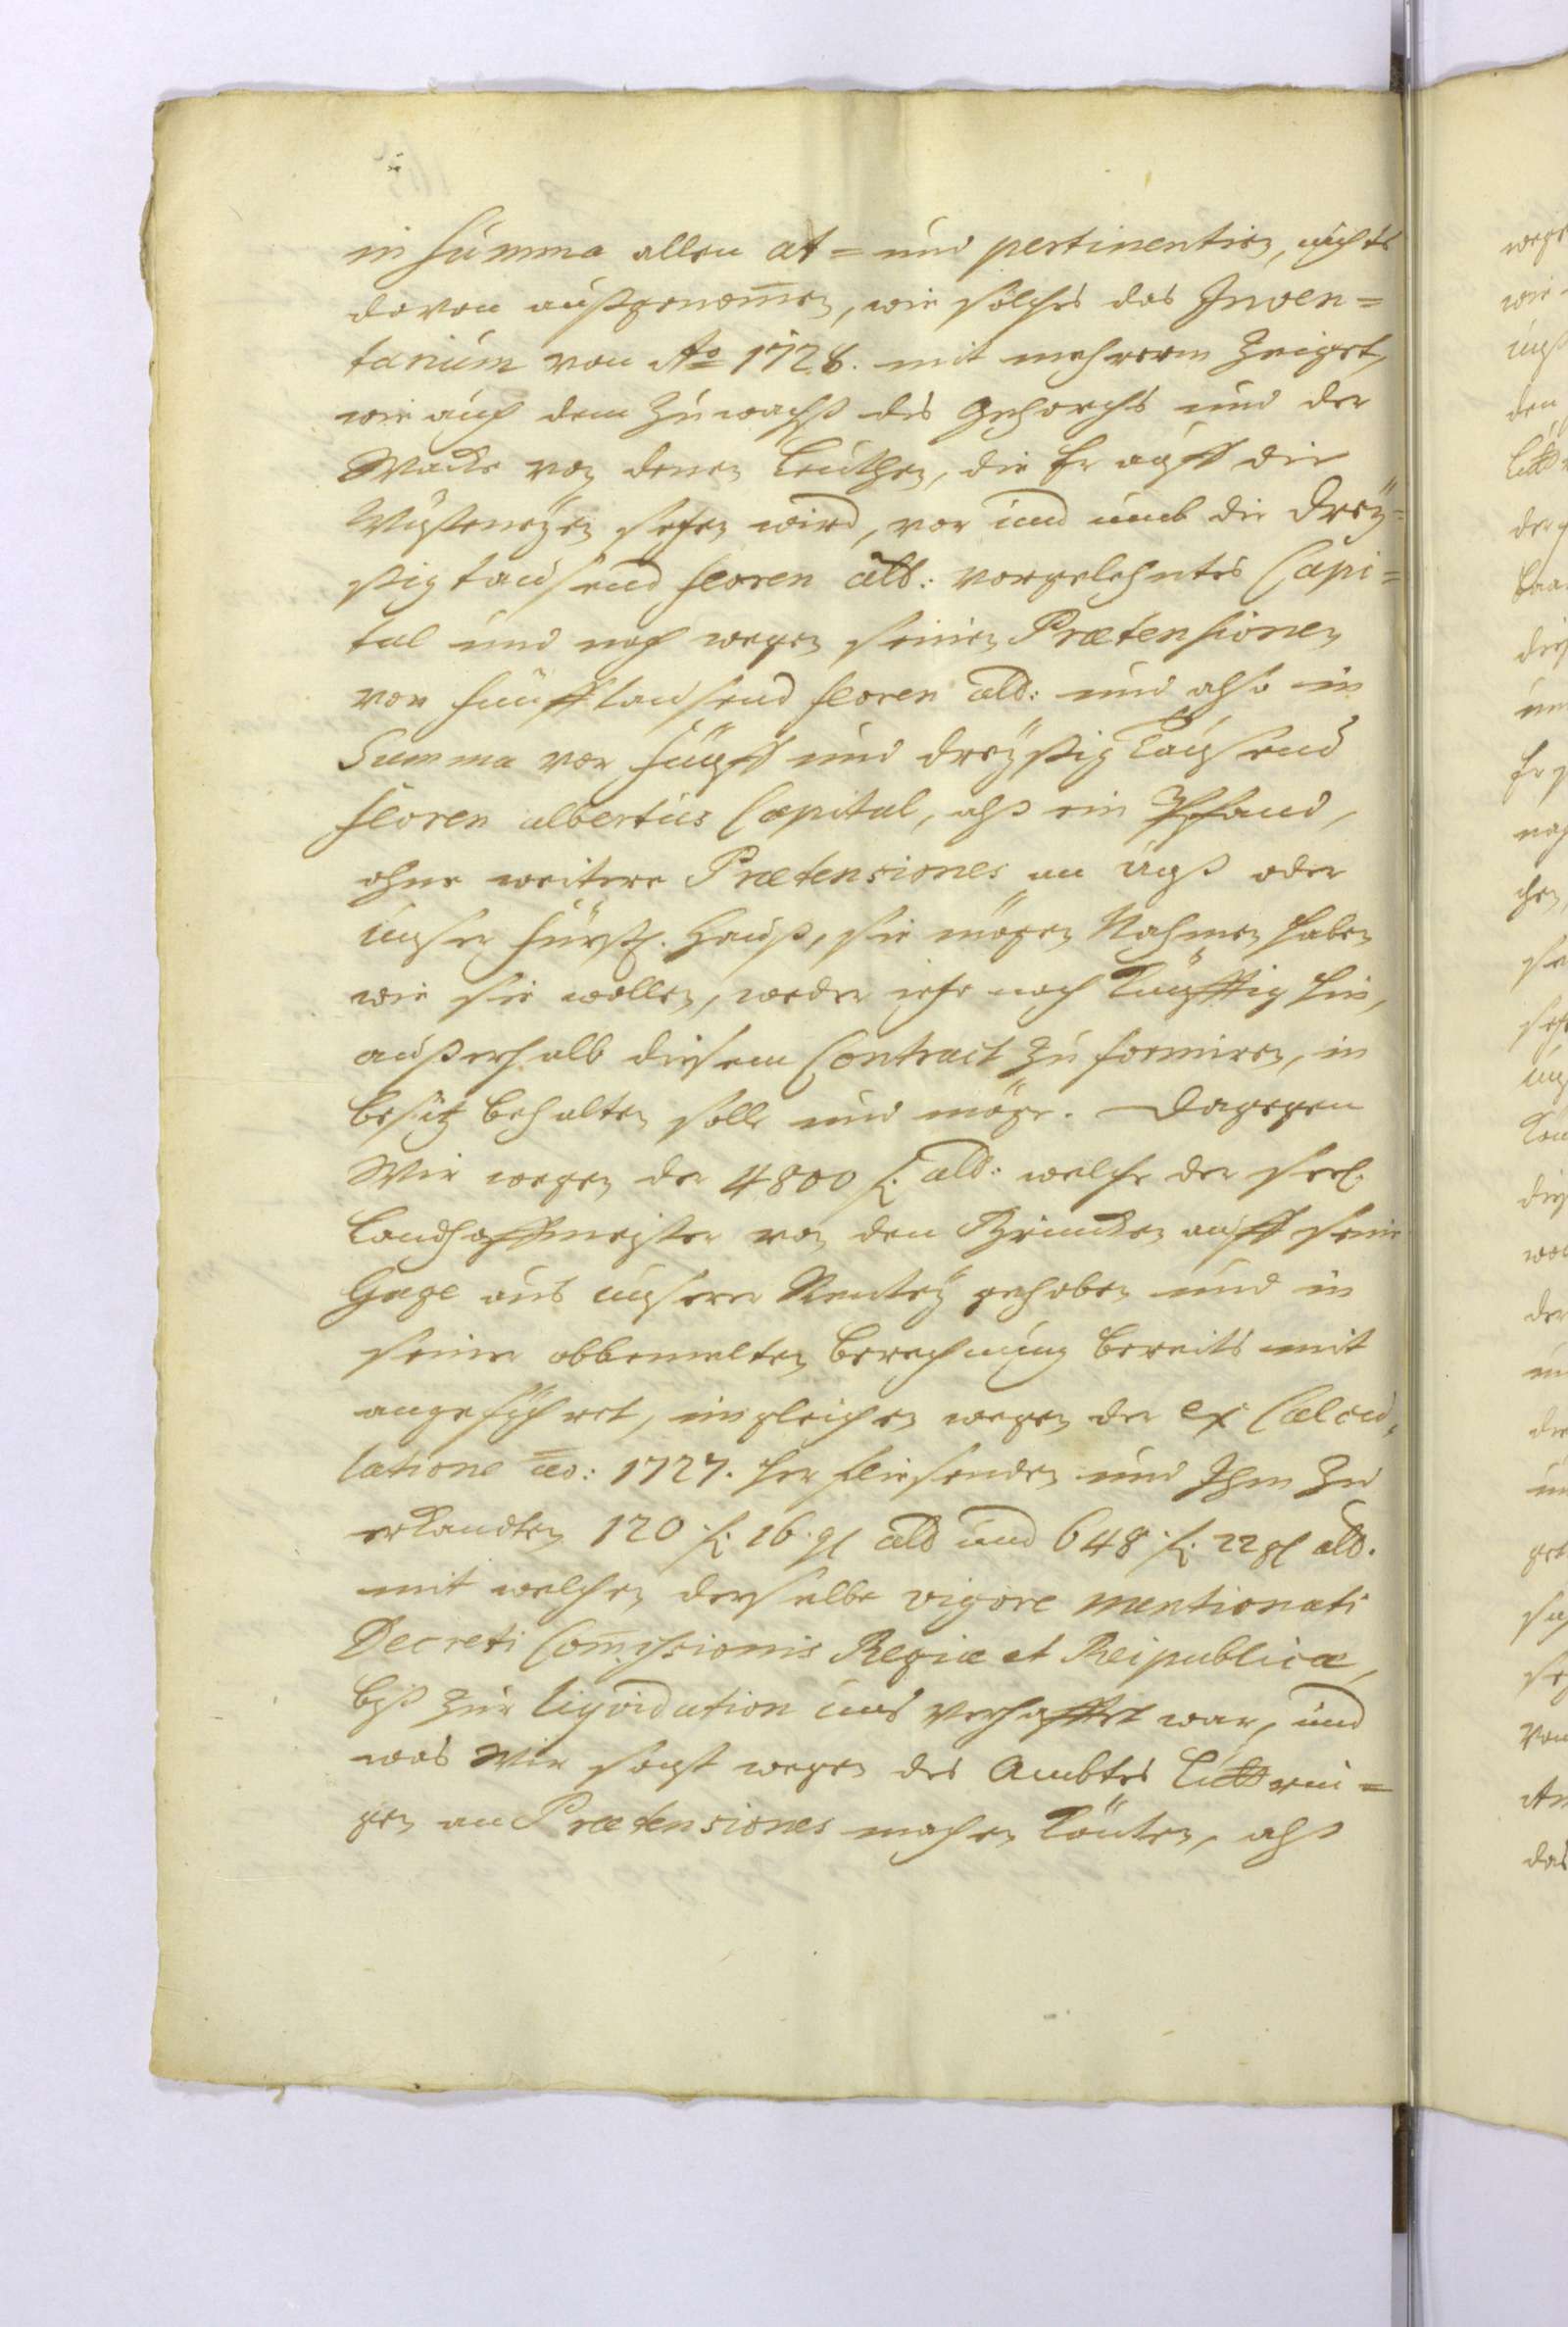 in summa allen at= und pertinentien, nichts
davon außgenom̄en, wie solches das Inven=
tarium von Ao 1728. mit mehrerm zeiget,
wie auch dem Zuwachß des Gehorchs und der
Wacke von denen Leuthen, die Er auff die
Wüsteneyen setzen wird, vor und umb die Drey=
ßig tausend floren alb: vorgelehntes Capi=
tal und noch wegen seiner Prætensionen
von fünfftausend floren alb: und also in
Summa vor fünff und dreyßig Tausend
floren albertus Capital, alß ein Pfand,
ohne weitere Prætensiones an unß oder
unser fürstl. Hauß, sie mögen Nahmen haben
wie sie wollen, weder itzo noch künfftig hin,
außerhalb diesem Contract zu formiren, in
besitz behalten solle und möge. Dagegen
Wir wegen der 4800 f. alb: welche der seel.
Landhoffmeister von den Brincken auff seine
Gage aus unserer Rentey gehoben und in
seiner obbemelten berechnung bereits mit
angeführet, imgleichen wegen der ex Calcu=
latione ao: 1727. herfließenden und Ihm zu
erkandten 120 f. 16. gl alb und 648 f. 22 gl alb.
mit welchen derselbe vigore mentionati
Decreti Com̄issionis Regiæ et Reipublicæ,
biß zur liquidation uns verhafftet war, und
was Wir sonst wegen des Ambtes
gen an Prætensiones machen könten, alß